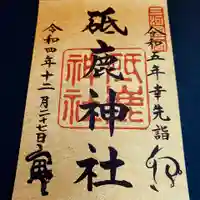 令和五年幸先詣
砥鹿神社
砥鹿
神社
令和四年十二月二十七日
寅